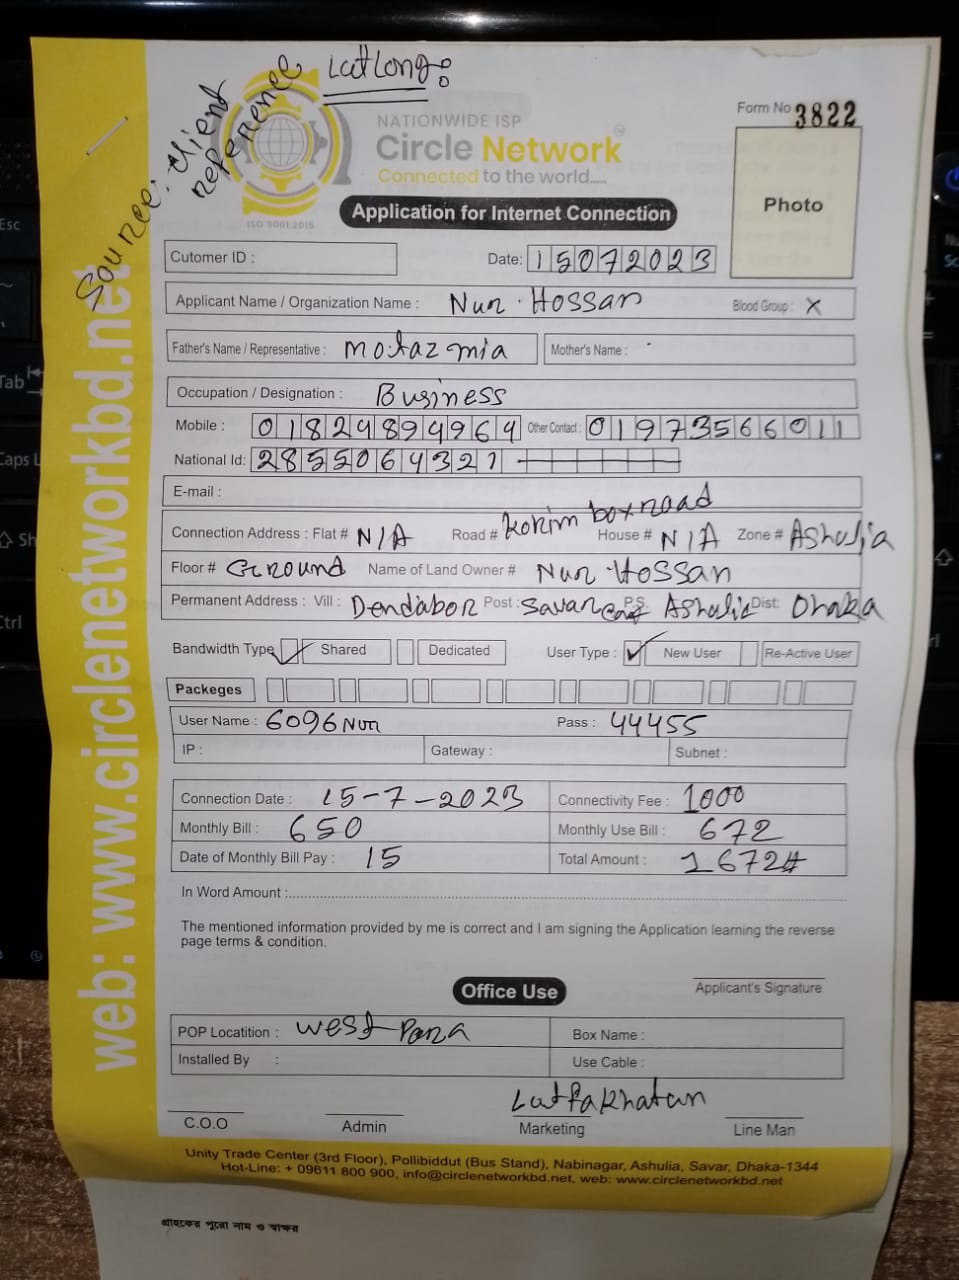 LatLong:
Source: Client reference
Form No 3822
NATIONWIDE ISP
Circle Network
Connected to the world.....
ISO 9001:2015
Photo
Application for Internet Connection
Cutomer ID :
Date: 15072023
Applicant Name / Organization Name : Nur Hossan Blood Group : X
Father's Name / Representative : motaz mia Mother's Name :
Occupation / Designation : Business
Mobile : 01824894964 Other Contact : 01973566011
National Id: 2855064321
E-mail :
Connection Address : Flat # N/A Road # Korim box road House # N/A Zone # Ashulia
Floor # Ground Name of Land Owner # Nur Hossan
Permanent Address : Vill : Dendabor Post : Savar P.S. Ashulia Dist: Dhaka
Bandwidth Type Shared Dedicated User Type : New User Re-Active User
Packeges
User Name : 6096Nur Pass : 44455
IP : Gateway : Subnet :
Connection Date : 15-7-2023 Connectivity Fee : 1000
Monthly Bill : 650 Monthly Use Bill : 672
Date of Monthly Bill Pay : 15 Total Amount : 1672#
In Word Amount :
The mentioned information provided by me is correct and I am signing the Application learning the reverse
page terms & condition.
Applicant's Signature
Office Use
POP Locatition : West Para Box Name :
Installed By : Use Cable :
Lutfakhatun
C.O.O Admin Marketing Line Man
Unity Trade Center (3rd Floor), Pollibiddut (Bus Stand), Nabinagar, Ashulia, Savar, Dhaka-1344
Hot-Line: + 09611 800 900, info@circlenetworkbd.net, web: www.circlenetworkbd.net
web: www.circlenetworkbd.net
গ্রাহকের পুরো নাম ও স্বাক্ষর
Esc
Tab
Caps L
Sh
Ctrl